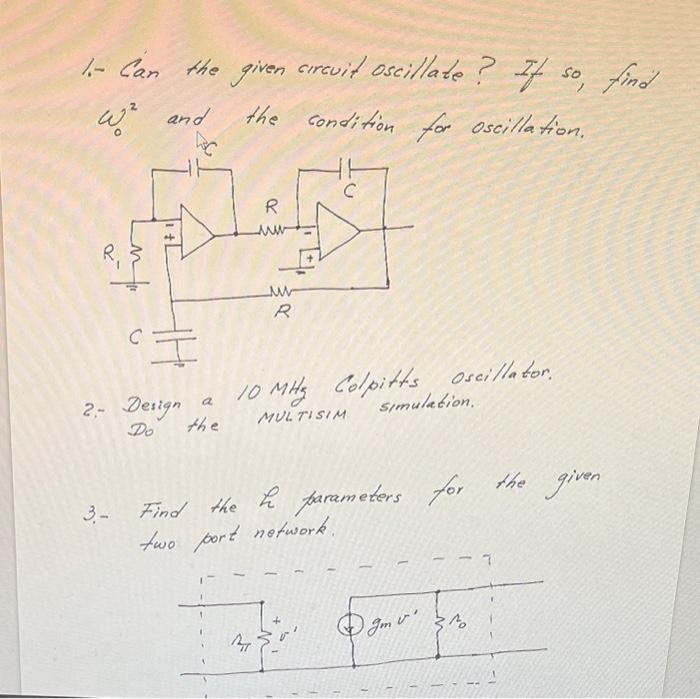 1.- Can the given circuit oscillate? If so, find
ω₀² and the condition for oscillation.
C
C
R
- +
- +
R₁
R
C
2.- Design a 10 MHz Colpitts oscillator.
Do the MULTISIM simulation.
3.- Find the h parameters for the given
two port network.
+
rπ v' gm v' r₀
-